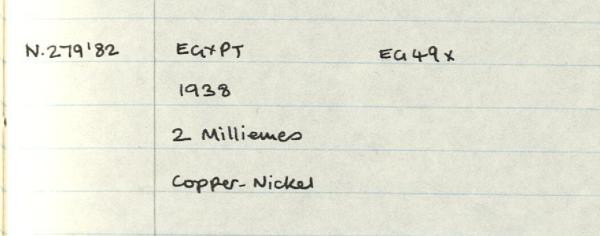 N.279'82 EGYPT EG49x
1938
2 Milliemes
Copper-Nickel